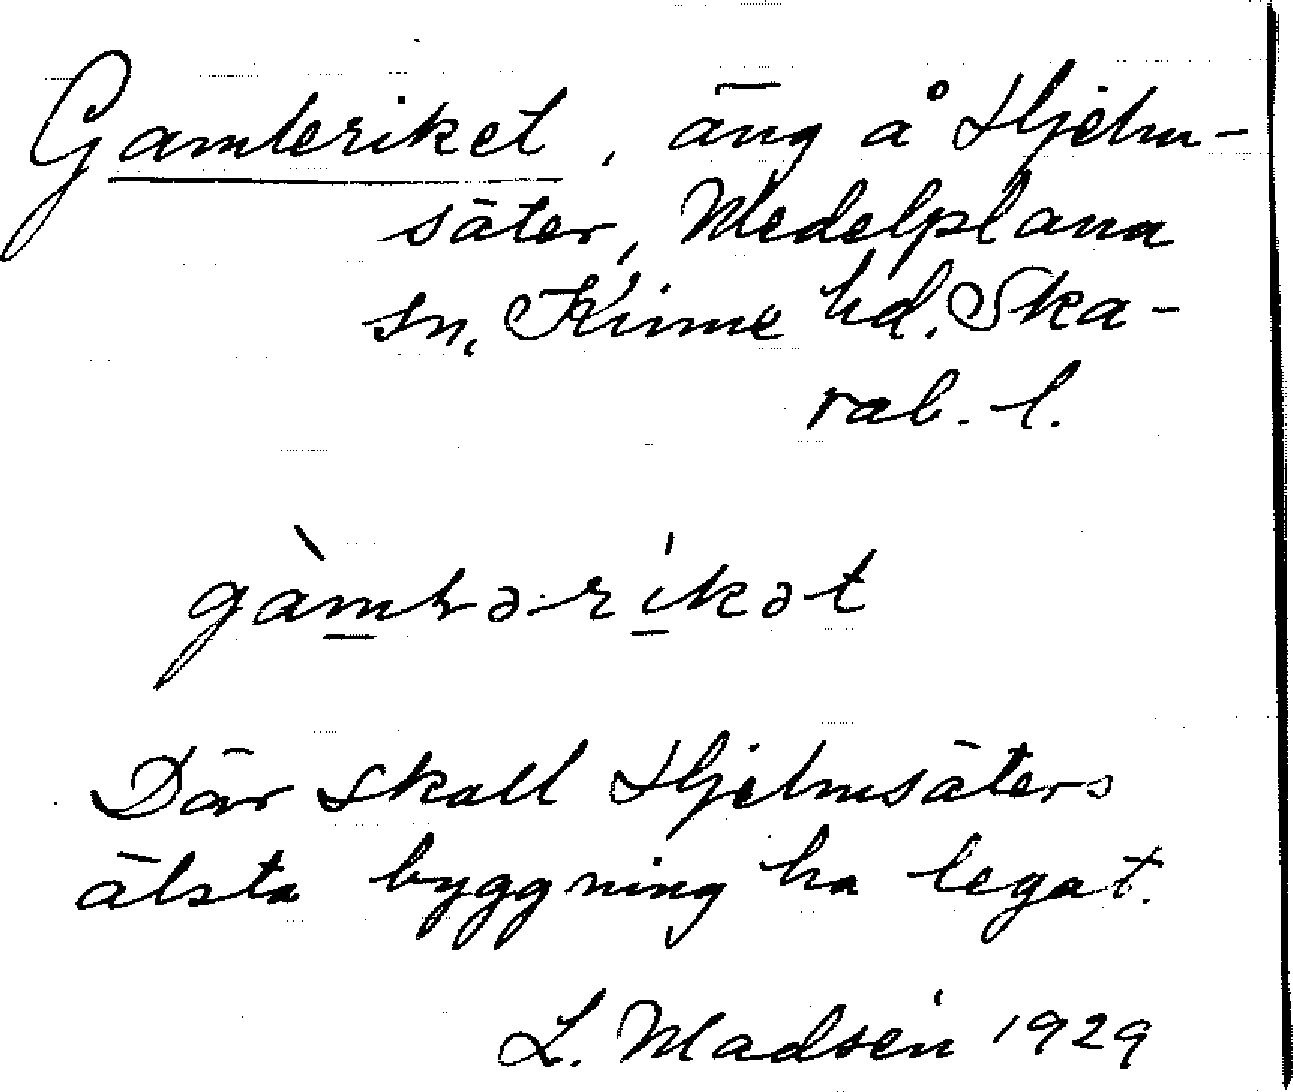 Gamleriket, äng å Hjelm-
säter, Medelplana
sn, Kinne hd. Ska-
rab. l.
Där skall Hjelmsäters
älsta byggning ha legat.
L. Madsén 1929